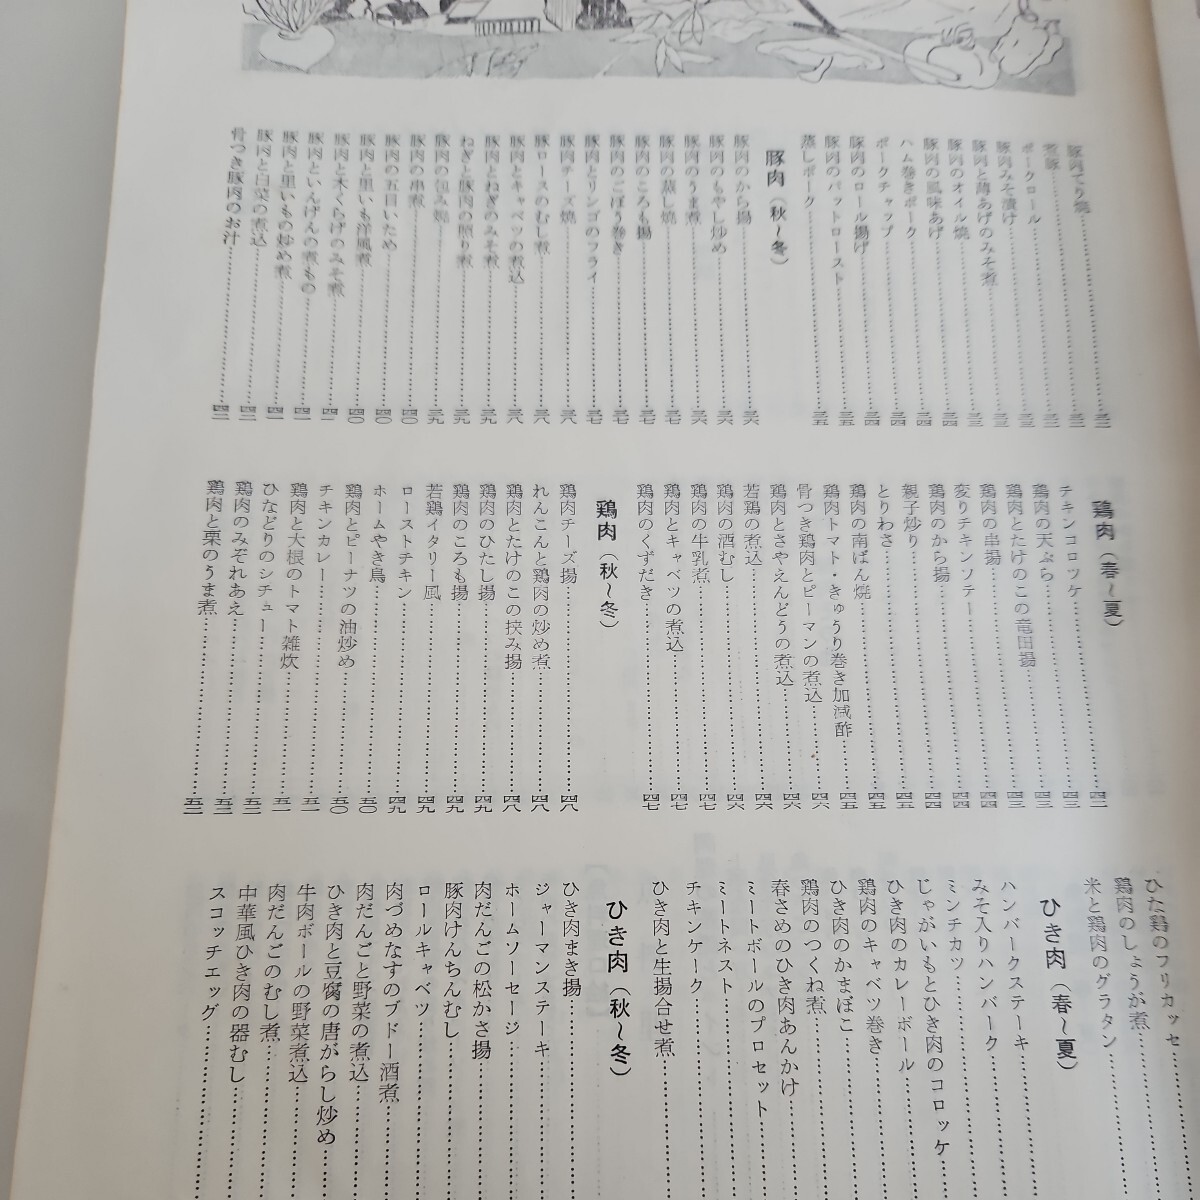 豚肉てり焼……三二
煮豚……三二
ポークロール……三三
豚肉みそ漬け……三三
豚肉と薄あげのみそ煮……三三
豚肉のオイル焼……三四
豚肉の風味あげ……三四
ハム巻きポーク……三四
ポークチャップ……三四
豚肉のロール揚げ……三四
豚肉のパットロースト……三五
蒸しポーク……三五
豚肉(秋〜冬)
豚肉のから揚……三六
豚肉のもやし炒め……三六
豚肉のうま煮……三六
豚肉の蒸し焼……三七
豚肉のころも揚……三七
豚肉のごぼう巻き……三七
豚肉とリンゴのフライ……三七
豚肉チーズ焼……三八
豚ロースのむし煮……三八
豚肉とキャベツの煮込……三八
豚肉とねぎのみそ煮……三九
ねぎと豚肉の照り煮……三九
豚肉の包み焼……三九
豚肉の串煮……四〇
豚肉の五目いため……四〇
豚肉と里いも洋風煮……四〇
豚肉と木くらげのみそ煮……四一
豚肉といんげんの煮もの……四一
豚肉と里いもの炒め煮……四一
豚肉と白菜の煮込……四二
骨つき豚肉のお汁……四二
鶏肉(春〜夏)
チキンコロッケ……四二
鶏肉の天ぷら……四三
鶏肉とたけのこの竜田揚……四三
鶏肉の串揚……四四
変りチキンソテー……四四
鶏肉のから揚……四四
親子炒り……四五
とりわさ……四五
鶏肉の南ばん焼……四五
鶏肉トマト・きゅうり巻き加減酢……四五
骨つき鶏肉とピーマンの煮込……四六
鶏肉とさやえんどうの煮込……四六
若鶏の煮込……四六
鶏肉の酒むし……四六
鶏肉の牛乳煮……四七
鶏肉とキャベツの煮込……四七
鶏肉のくずだき……四七
鶏肉(秋〜冬)
鶏肉チーズ揚……四八
れんこんと鶏肉の炒め煮……四八
鶏肉とたけのこの挟み揚……四八
鶏肉のひたし揚……四九
鶏肉のころも揚……四九
若鶏イタリー風……四九
ローストチキン……四九
ホームやき鳥……五〇
鶏肉とピーナツの油炒め……五〇
チキンカレー……五一
鶏肉と大根のトマト雑炊……五一
ひなどりのシチュー……五二
鶏肉のみぞれあえ……五二
鶏肉と栗のうま煮……五三
ひな鶏のフリカッセ……
鶏肉のしょうが煮……
米と鶏肉のグラタン……
ひき肉(春〜夏)
ハンバークステーキ……
みそ入りハンバーク……
ミンチカツ……
じゃがいもとひき肉のコロッケ……
ひき肉のカレーボール……
鶏肉のキャベツ巻き……
ひき肉のかまぼこ……
鶏肉のつくね煮……
春さめのひき肉あんかけ……
ミートボールのプロセット……
ミートネスト……
チキンケーク……
ひき肉と生揚合せ煮……
ひき肉(秋〜冬)
ひき肉まき揚……
ジャーマンステーキ……
ホームソーセージ……
肉だんごの松かさ揚……
豚肉けんちんむし……
ロールキャベツ……
肉づめなすのブドー酒煮……
肉だんごと野菜の煮込……
ひき肉と豆腐の唐がらし炒め……
牛肉ボールの野菜煮込……
肉だんごのむし煮……
中華風ひき肉の器むし……
スコッチエッグ……